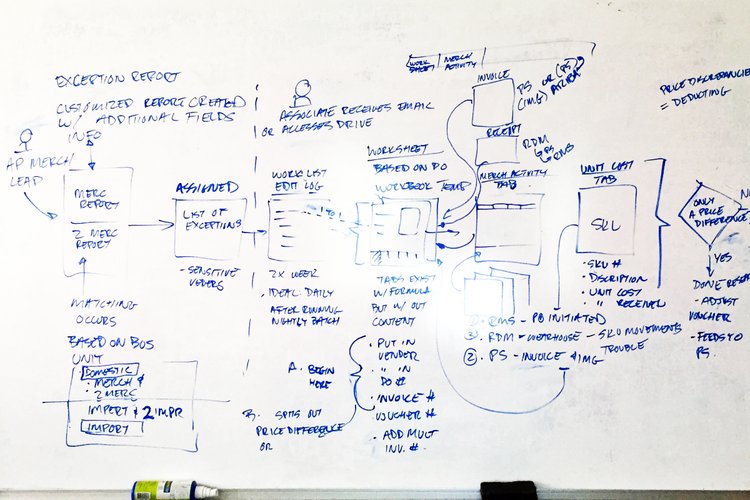 EXCEPTION REPORT
CUSTOMIZED REPORT CREATED
W/ ADDITIONAL FIELDS
INFO
AP MERCH
LEAD
MERC
REPORT
2 MERC
REPORT
MATCHING
OCCURS
BASED ON BUS
UNIT
DOMESTIC
• MERCH &
• 2 MERC
IMPERT & 2 IMPR
IMPORT
ASSIGNED
LIST OF
EXCEPTIONS
- SENSITIVE
ASSOCIATE RECEIVES EMAIL
OR ACCESSES DRIVE
WORK LIST
EDIT LOG
1 to 1
2X WEEK
• IDEAL: DAILY
AFTER RUNNING
NIGHTLY BATCH
A. BEGIN
HERE
B. SPITS OUT
PRICE DIFFERENCE
OR
WORKSHEET
BASED ON DO
WORKBOOK TEMP
TABS EXIST
W/ FORMULA
BUT W/OUT
CONTENT
• PUT IN
VENDER
• " IN
DO #
• INVOICE #
VOUCHER #
• ADD MULT
INV. #
WORK
SHEET
MERCH
ACTIVITY
INVOICE
PS OR (PS
(IMG) ARIBA
RECEIPT
RDM
PS
RMS
MERCH ACTIVITY
TAB
RMS - PO INITIATED
RDM - WAREHOUSE - SKU MOVEMENTS
② PS - INVOICE & IMG TROUBLE
UNIT COST
TAB
SKU
• SKU #
• DSCRIPTION
• UNIT COST
" RECEIVER
PRICE DISCREPANCIES
= DEDUCTING
ONLY
A PRICE
DIFFERENCE?
YES
- ADJUST
VOUCHER
- FEEDS TO
PS.